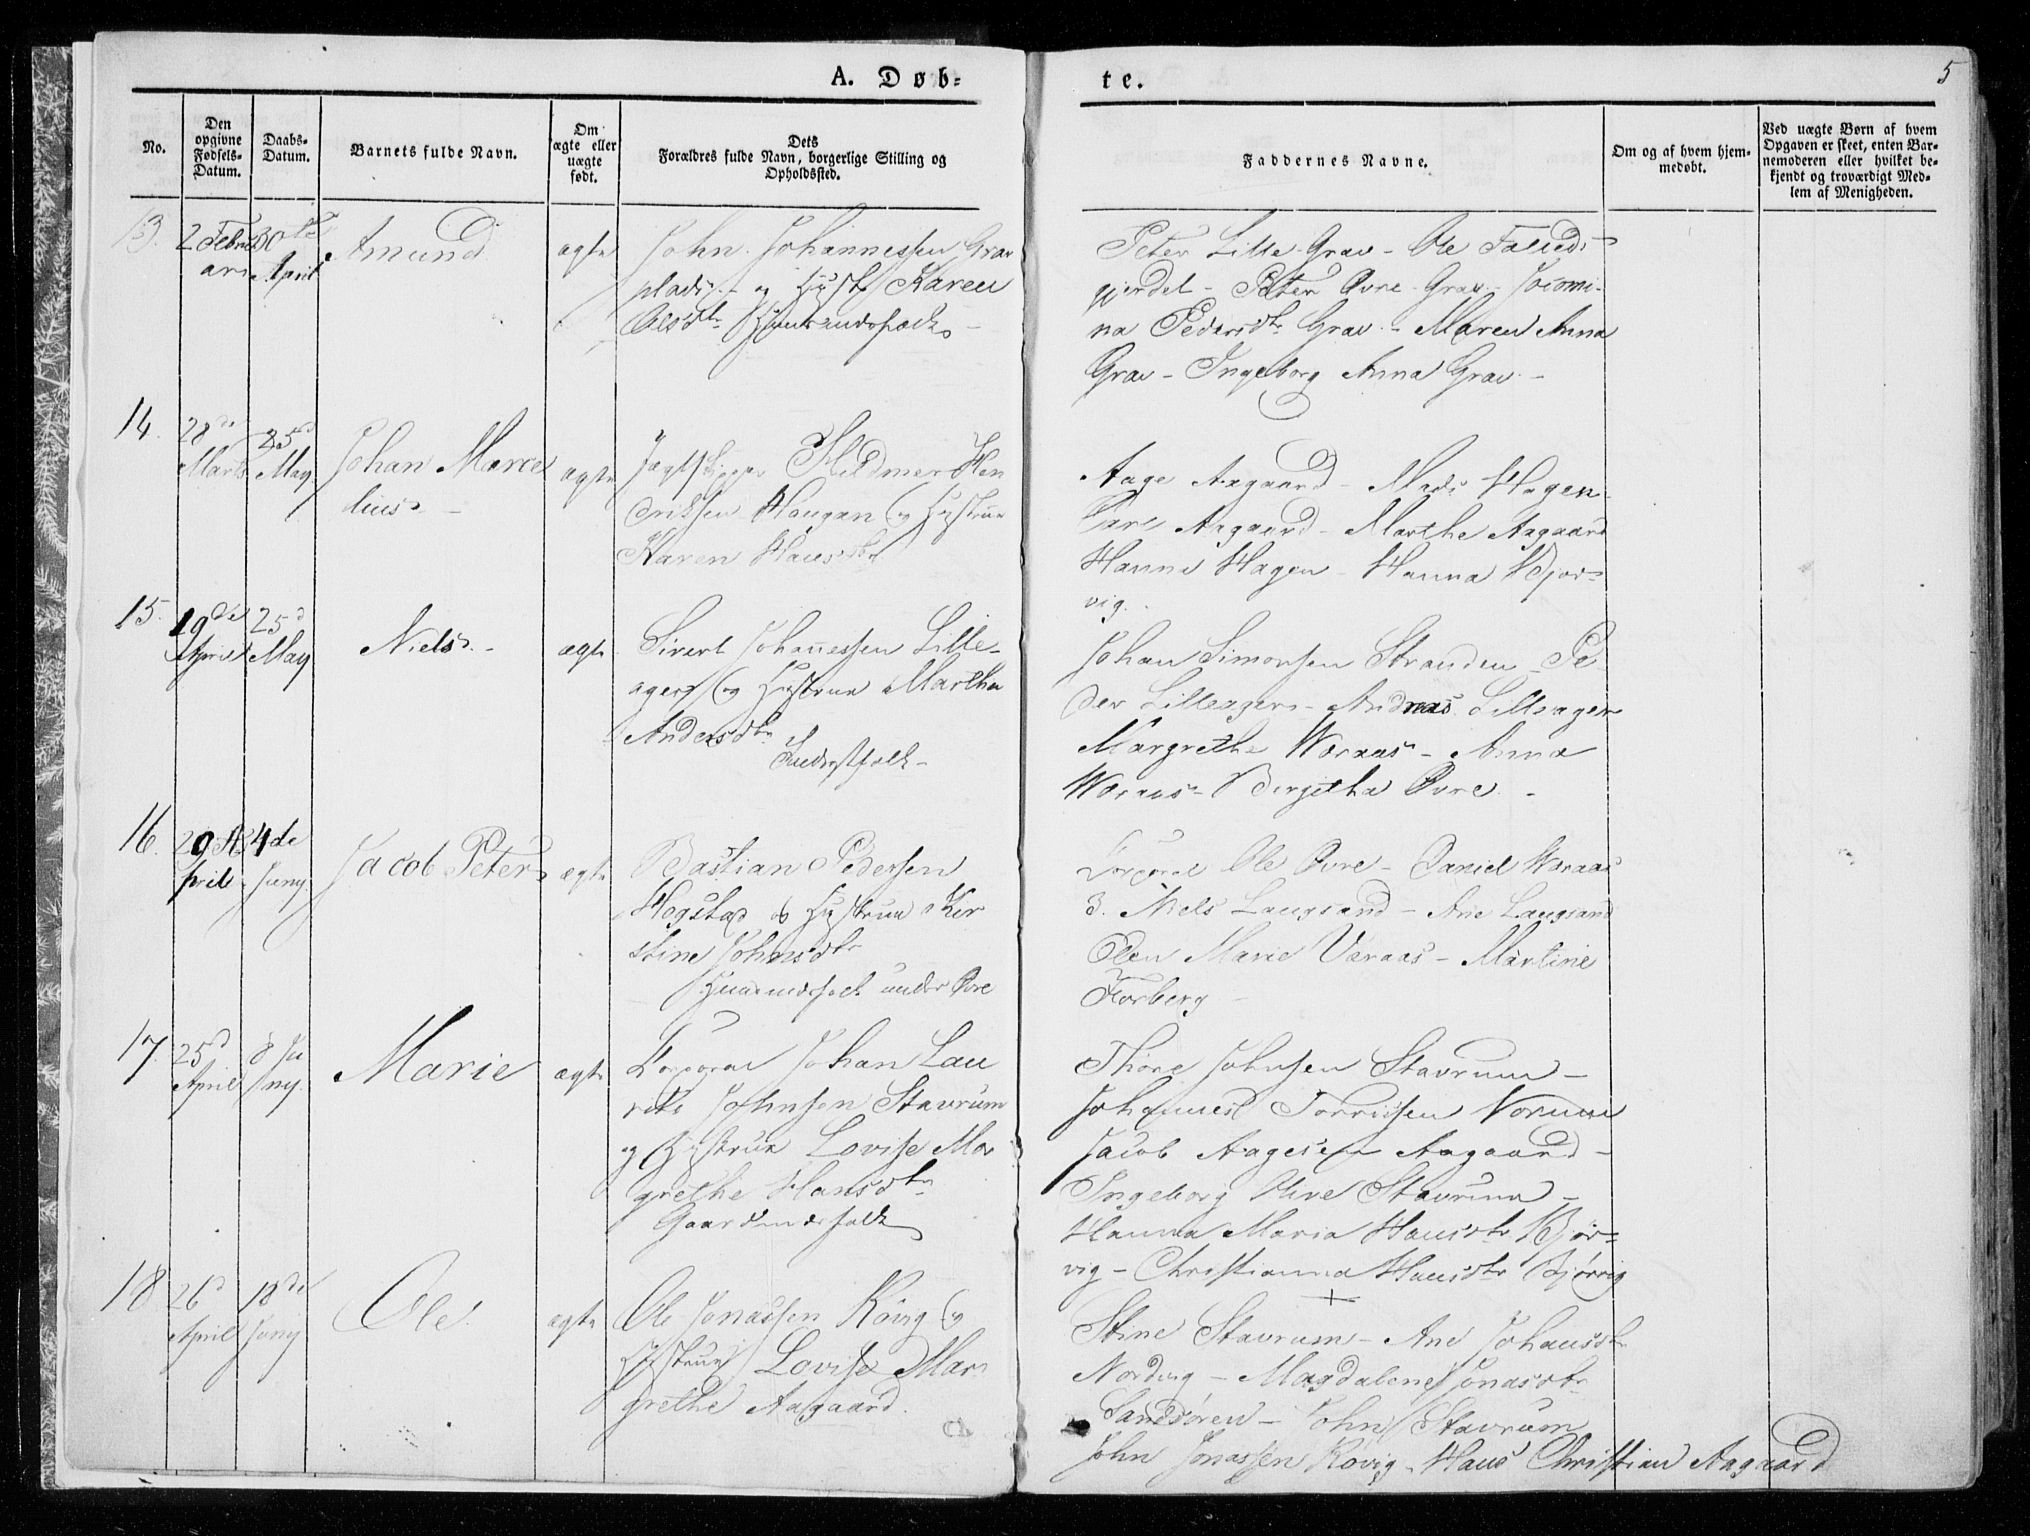 A. Døb-
te.
5
No.
Den opgivne Fødsels-Datum.
Daabs-Datum.
Barnets fulde Navn.
Om ægte eller uægte født.
Dets Forældres fulde Navn, borgerlige Stilling og Opholdssted.
Faddernes Navne.
Om og af hvem hjem-
medøbt.
Ved uægte Børn af hvem
Opgaven er skeet, enten Bar-
nemoderen eller hvilket be-
kjendt og troværdigt Med-
lem af Menigheden.
13. 2 Febru
ari
30te
April
Amund
ægte
John Johannessen Grav
plads og Hust Karen
Olsdtr Huusmandsfolk
Peter Lille Grav - Ole
Peter Øvre Grav -
na Pedersdtr Grav - Maren Anna
Grav - Ingeborg Anna Grav -
14.
28de
Marts
25d
May
Johan Marce
lius -
ægte
Jægtskipper Hildmer Hen
riksen Haugan og Hustrue
Karen Hansdtr
Aage Aagaard - Mads Hagen
Aagaard - Marthe Aagaard
Hanna Hagen - Hanna Bjør-
vig.
15.
19de
April
25d
May
Niels -
ægte
Sivert Johannessen Lille-
ager og Hustrue Martha
Andersdtr
Inderstfolk -
Johan Simonsen Stranden - Pe
der Lilleager - Andreas Lilleager
Margrethe Woraas - Anna
Woraas - Bergitha Øvre -
16.
29 A
pril
4de
Juny
Jacob Peter
ægte
Bastian Pedersen
Hegstad og Hustrue Kir
stine Johnsdtr
Huusmdsfolk under Øvre
Corporal Ole Øvre - Daniel Woraas
3. Niels Langsand - Ane Langsand
Elen Marie Varaas - Martine
Forberg -
17.
25d
April
8 Ju
ny.
Marie
ægte
Corporal Johan Lau
rits Johnsen Stavrum
og Hustrue Lovise Mar
grethe Hansdtr
Gaardmdsfolk
Thore Johnsen Stavrum -
Johannes Torrissen Norum
Jacob Aagesen Aagaard -
Ingeborg Olive Stavrum -
Hanna Maria Hansdtr Bjør-
vig - Christianna Hansdtr Bjørvig
18
26d
April
18de
Juny
Ole
ægte
Ole Jonassen Røvig og
Hustrue Lovise Mar-
grethe Aagaard.
Stine Stavrum - Ane Johansdtr
Nordvig - Magdalene Jonasdtr
Sandsøren - John Stavrum
John Jonassen Røvig - Hans Christian Aagaard